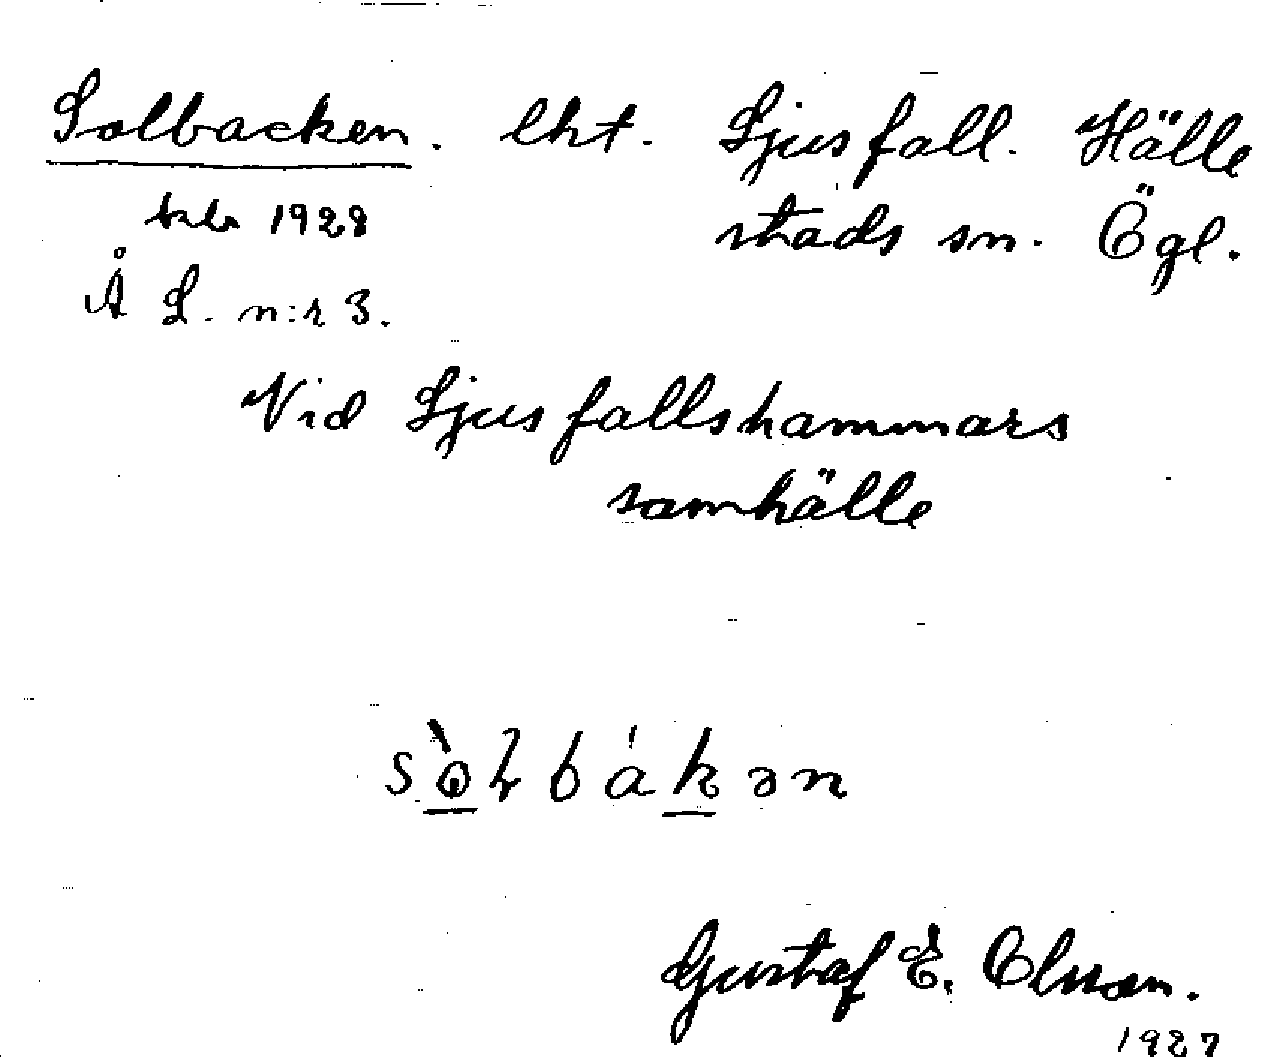 Solbacken. lht. Ljusfall. Hälle
stads sn. Ögl.
1928
Å L. n:r 3.
Vid Ljusfallshammars
samhälle
Gustaf E. Olsson.
1927